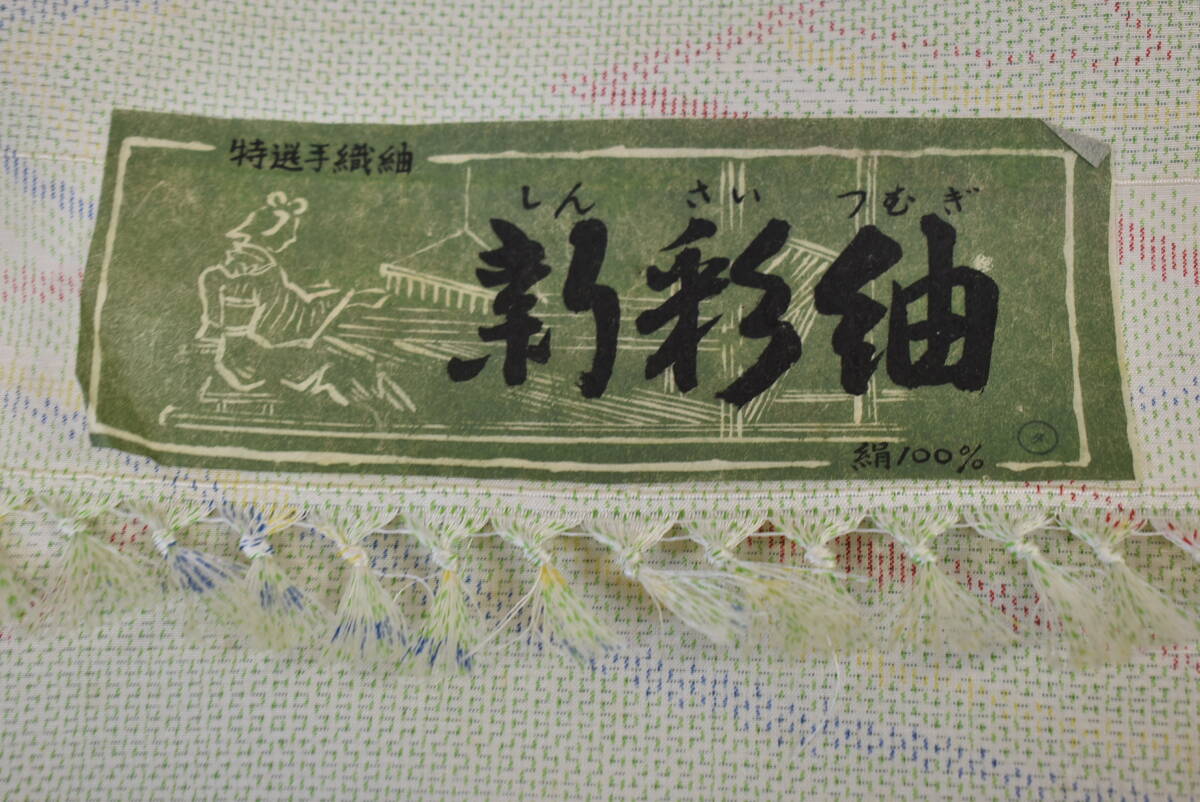 特選手織紬
しん さい つむぎ
新彩紬
絹100%